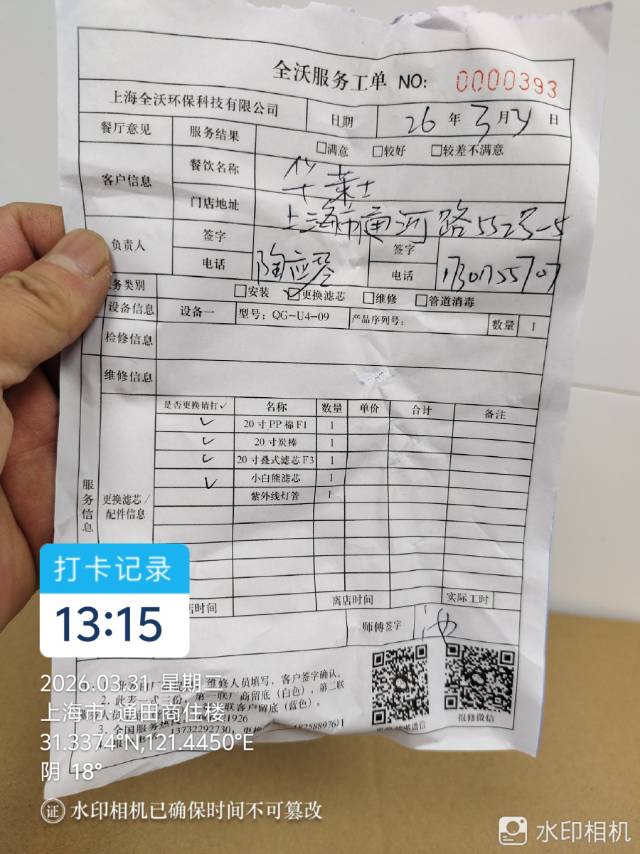 全沃服务工单 NO: 0000393
上海全沃环保科技有限公司 日期 26 年 3 月 31 日
餐厅意见 服务结果 □满意 □较好 □较差不满意
客户信息 餐饮名称 华莱士
门店地址 上海市通河路552号-5
负责人 签字 陶应琴 签字
电话 电话
服务类别 □安装 ☑更换滤芯 □维修 □管道消毒
设备信息 设备一 型号: QG-U4-09 产品序列号: 数量 1
检修信息
维修信息
服务信息 更换滤芯/配件信息
是否更换请打✓ 名称 数量 单价 合计 备注
✓ 20 寸 PP 棉 F1 1
✓ 20 寸炭棒 1
✓ 20 寸叠式滤芯 F3 1
✓ 小白熊滤芯 1
紫外线灯管 1
店时间 离店时间 实际工时
师傅签字
维修人员填写，客户签字确认。
2、此表一式三份，第一联厂商留底（白色），第二联
客户留底（蓝色）。
3、全国服务热线 1926
13732292730; 更换
报修微信
打卡记录
13:15
2026.03.31 星期二
上海市·通田商住楼
31.3374°N,121.4450°E
阴 18°
证 水印相机已确保时间不可篡改
水印相机